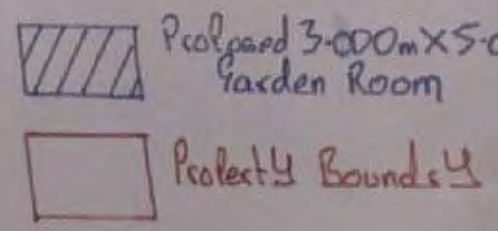 Prolposed 3.000m X 5.0
Garden Room
Prolerty Boundry